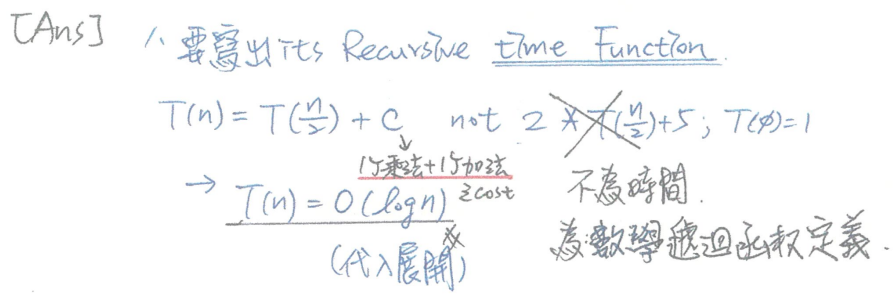 [Ans] 1、要寫出its Recursive time Function.
T(n) = T(n/2) + C not 2 * T(n/2)+5; T(φ)=1
↓
1次乘法+1次加法
之cost
→ T(n) = O(log n) ※
(代入展開)
不為時間.
為數學遞迴函數定義.